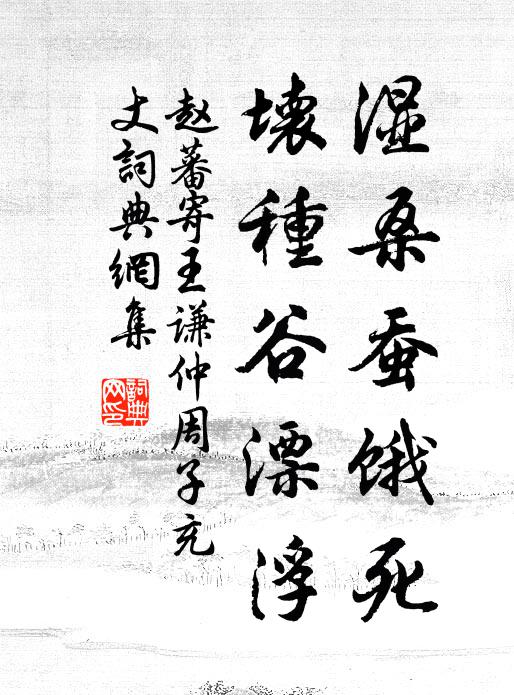 湿桑蚕饿死
壊種谷漂浮
赵蕃寄王谦仲周子充
丈詞典網集
詞典網印